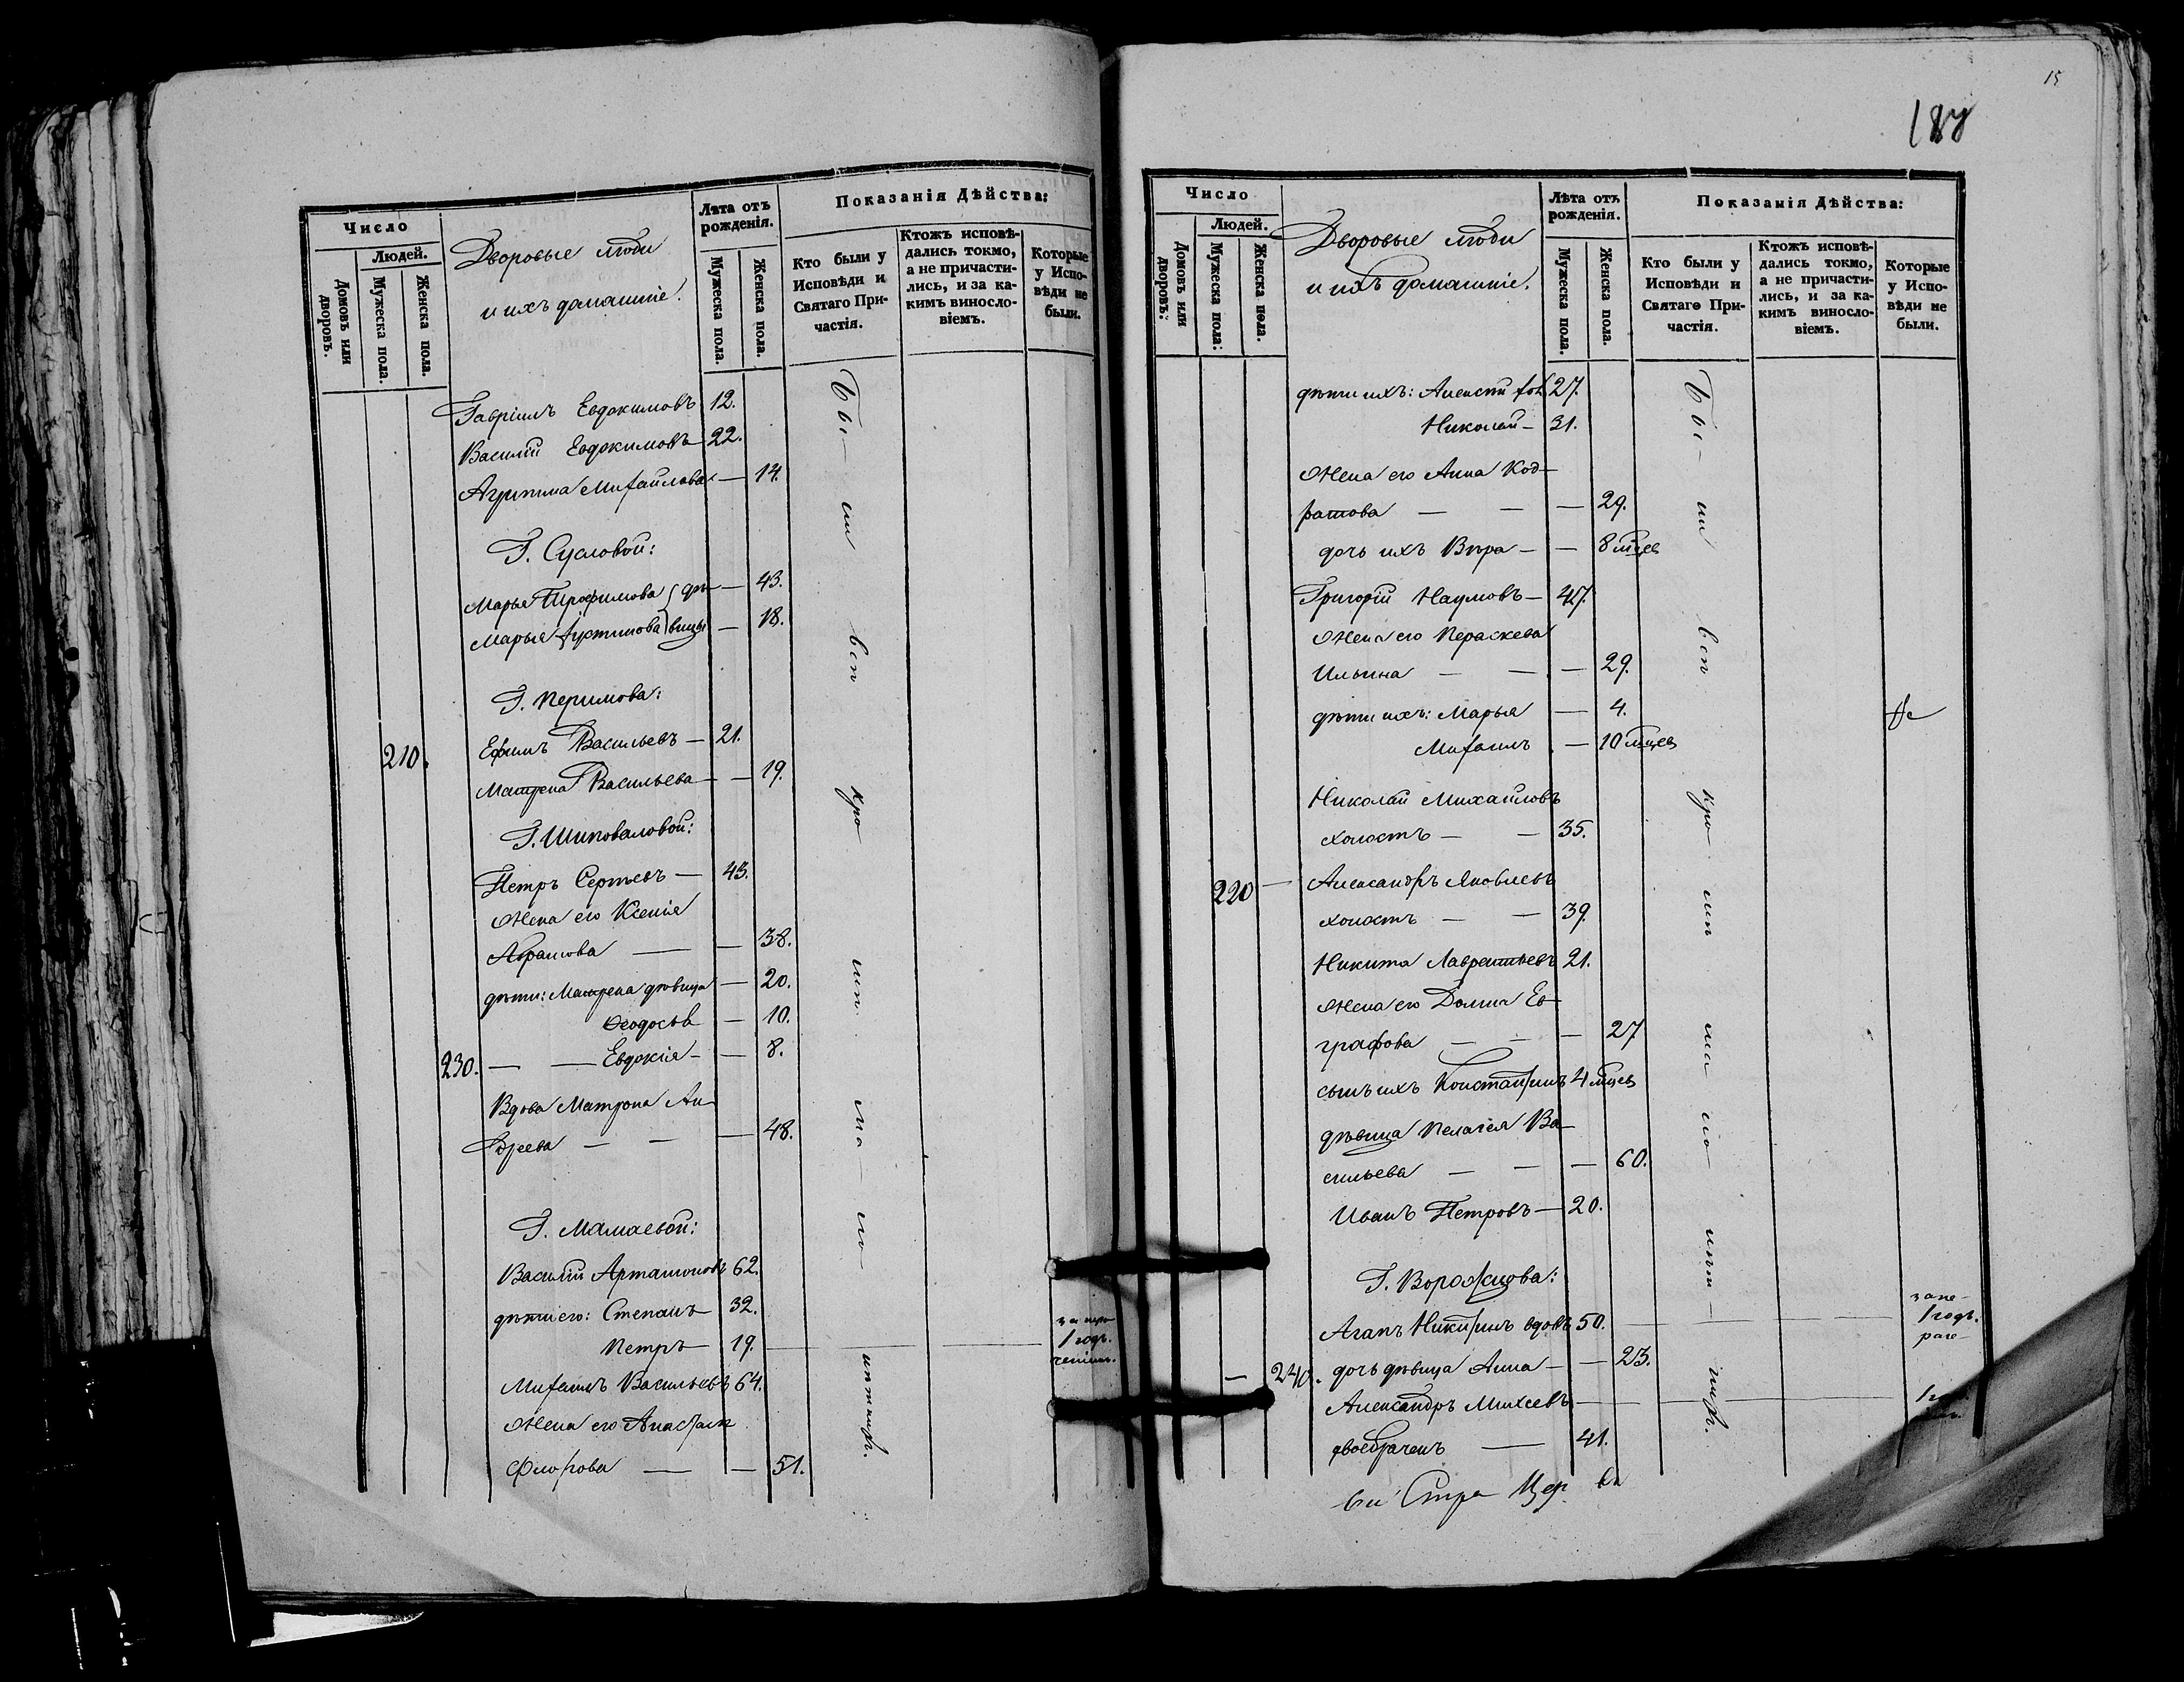 Число
Людей.
Домовъ или дворовъ.
Мужеска пола.
Женска пола.
Дворовые люди
и ихъ домашніе.
Лѣта отъ рожденія.
Мужеска пола.
Женска пола.
Показанія Дѣйства:
Кто были у Исповѣди и Святаго Причастія.
Ктожъ исповѣдались токмо, а не причастились, и за какимъ винословіемъ.
Которые у Исповѣди не были.
Гавріилъ Евдокимовъ 12.
Василій Евдокимовъ 22.
Агрипина Михайлова — 14.
Г. Сусловой:
Марья Трофимова дѣ— 43.
Марья Іустинова вицы — 18.
Г. Перимова:
210. Ефимъ Васильевъ — 21.
Матрена Васильева — 19.
Г. Шиповаловой:
Петръ Сергѣевъ — 43.
Жена его Ксенія
Абрамова — 38.
дѣти: Матрена дѣвица — 20.
Ѳеодосья — 10.
230. — — Евдокія — 8.
Вдова Матрона Ан-
дреева — — — 48.
Г. Мамаевой:
Василій Артамоновъ 62.
дѣти его: Степанъ 32.
Петръ 19. 1 годъ.
Михаилъ Васильевъ 64.
Жена его Анастасія
Флорова — — 51.
Бы— ли всѣ кро— мѣ ма— ло— лѣтнихъ.
15
188
Число
Людей.
Домовъ или дворовъ.
Мужеска пола.
Женска пола.
Дворовые люди
и ихъ домашніе.
Лѣта отъ рожденія.
Мужеска пола.
Женска пола.
Показанія Дѣйства:
Кто были у Исповѣди и Святаго Причастія.
Ктожъ исповѣдались токмо, а не причастились, и за какимъ винословіемъ.
Которые у Исповѣди не были.
дѣти ихъ: Алексѣй хол 27.
Николай — 31.
Жена его Анна Код-
ратова — — — 29.
дочь ихъ Вѣра — — 8 мцев
Григорій Наумовъ — 47.
Жена его Пераскева
Ильина — — — 29.
дѣти ихъ: Марья — 4.
Михаилъ — 10 мцев
Николай Михайловъ
холостъ — — 35.
220 — Александръ Яковлевъ
холостъ — — 39.
Никита Лаврентьевъ 21.
Жена его Домна Ев-
графова — — — 27
сынъ ихъ Константинъ 4 мцев
дѣвица Пелагея Ва-
сильева — — — 60.
Иванъ Петровъ — 20.
Г. Ворожцова:
Агапъ Никитинъ вдовъ 50. 1 годъ.
— 240. дочь дѣвица Анна — — 23.
Александръ Михеевъ —
двоебраченъ — 41.
Бы— ли всѣ кро— мѣ ма— ло— лѣт— нихъ.